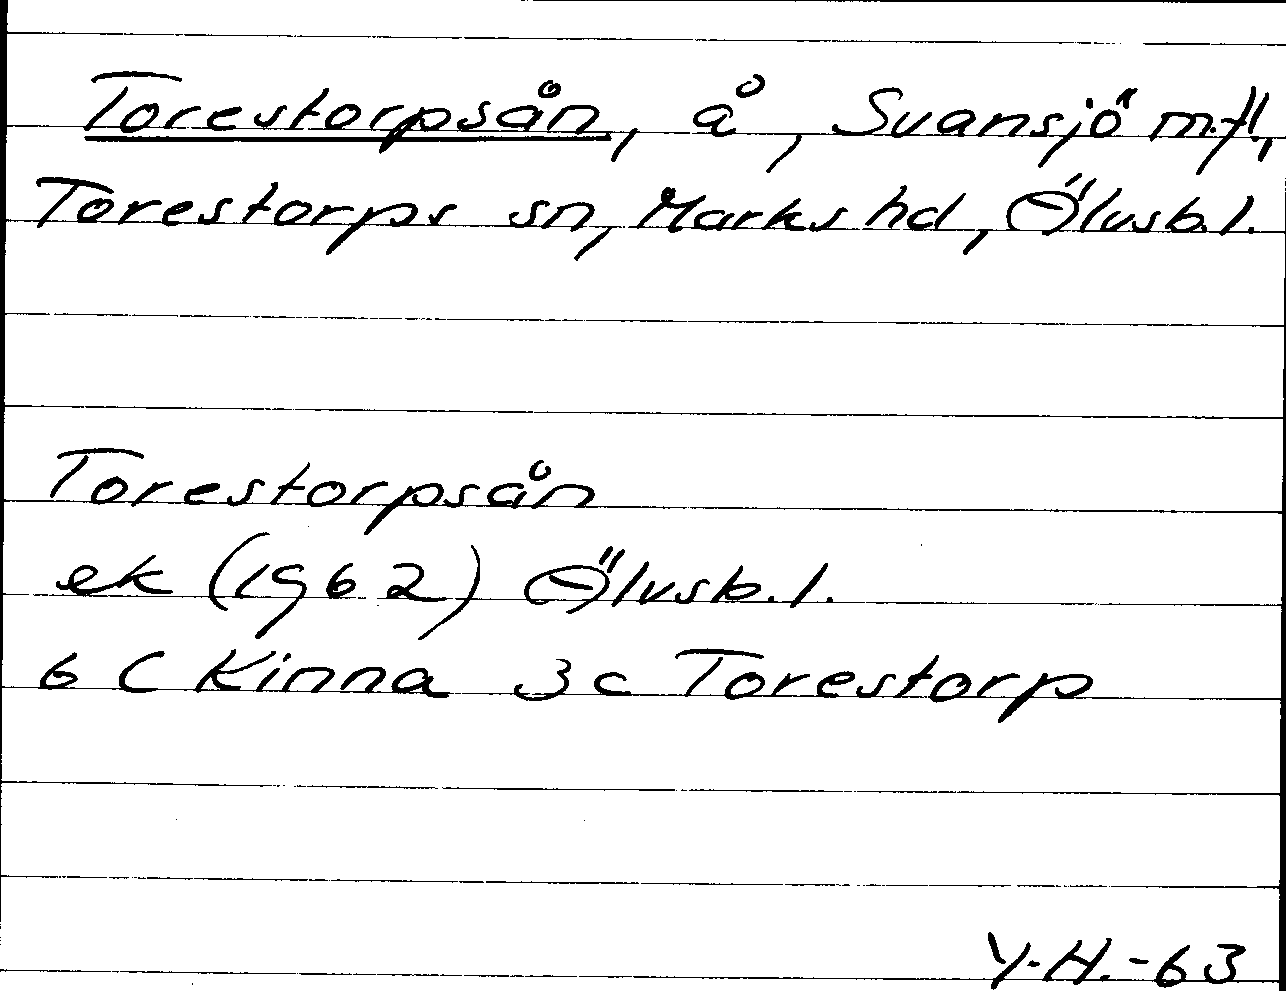 Torestorpsån, å, Svansjö m.fl.,
Torestorps sn, Marks hd, Älvsb.l.
Torestorpsån
ek (1962) Älvsb.l.
6 C Kinna 3 c Torestorp
Y.H.-63